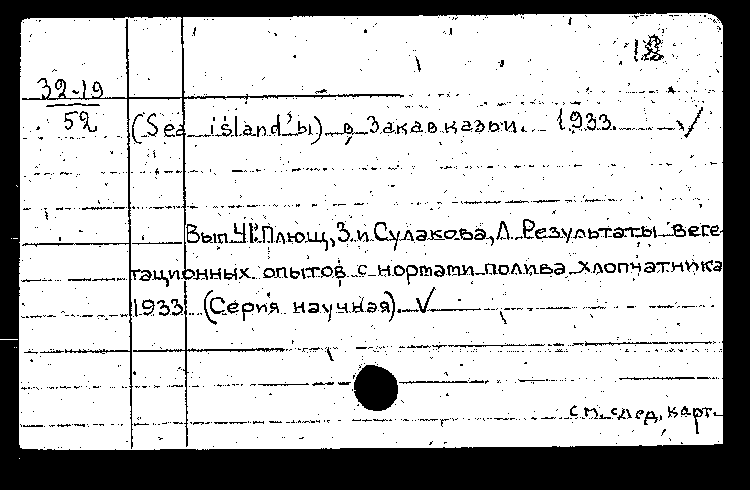 18
32-19
52
(Sea island'ы) в Закавказьи. 1933. ✓
Вып. Плющ, З. и Сулакова, Л. Результаты веге-
тационных опытов с нормами полива хлопчатника
1933 (Серия научная). ✓
см. след. карт.